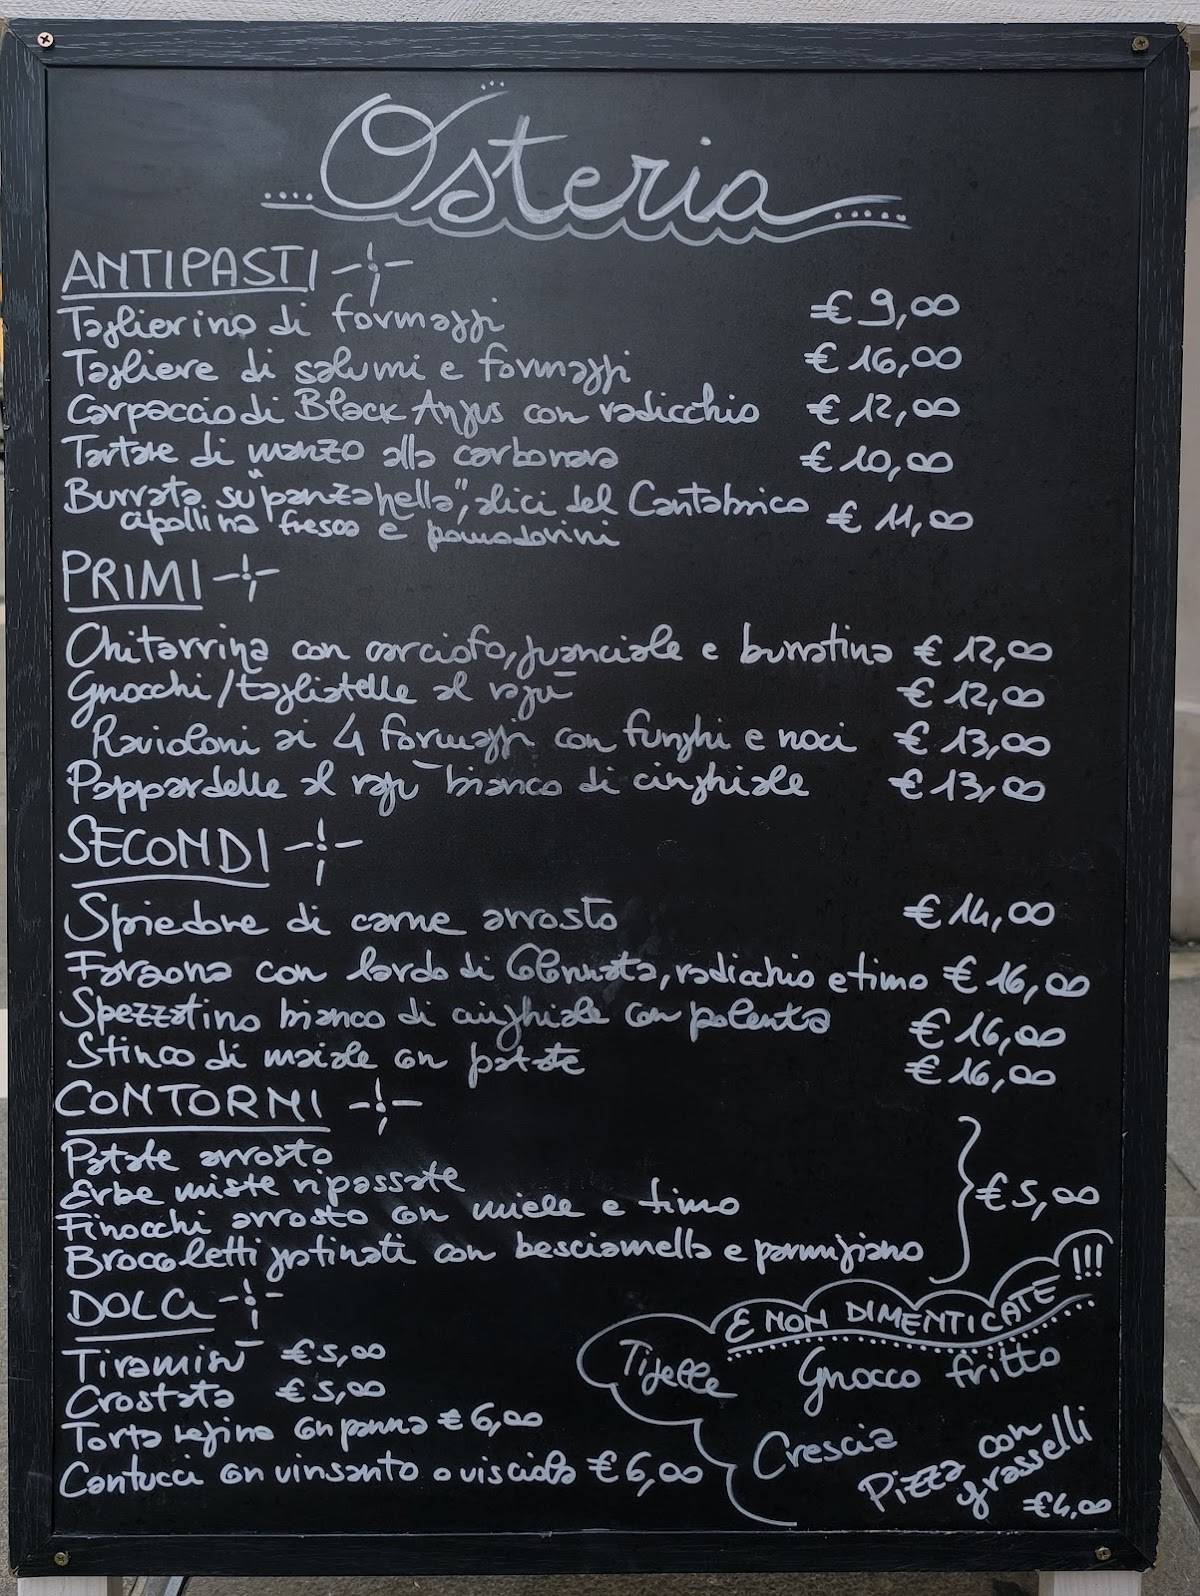 Osteria
ANTIPASTI
Taglierino di formaggi € 9,00
Tagliere di salumi e formaggi € 16,00
Carpaccio di Black Angus con radicchio € 12,00
Tartare di manzo alla carbonara € 10,00
Burrata su "panzanella", alici del Cantabrico € 11,00
cipollina fresca e pomodorini
PRIMI
Chitarrina con carciofo, guanciale e burratina € 12,00
Gnocchi/tagliatelle al ragù € 12,00
Ravioloni ai 4 formaggi con funghi e noci € 13,00
Pappardelle al ragù bianco di cinghiale € 13,00
SECONDI
Spiedone di carne arrosto € 14,00
Faraona con lardo di Colonnata, radicchio e timo € 16,00
Spezzatino bianco di cinghiale con polenta € 16,00
Stinco di maiale con patate € 16,00
CONTORNI
Patate arrosto
Erbe miste ripassate
€ 5,00
Finocchi arrosto con miele e timo
Broccoletti gratinati con besciamella e parmigiano
DOLCI
Tiramisù € 5,00
Crostata € 5,00
Torta regina con panna € 6,00
Cantucci con vinsanto o visciola € 6,00
E NON DIMENTICATE !!!
Tigelle
Gnocco fritto
Crescia
Pizza con
grasselli
€ 4,00